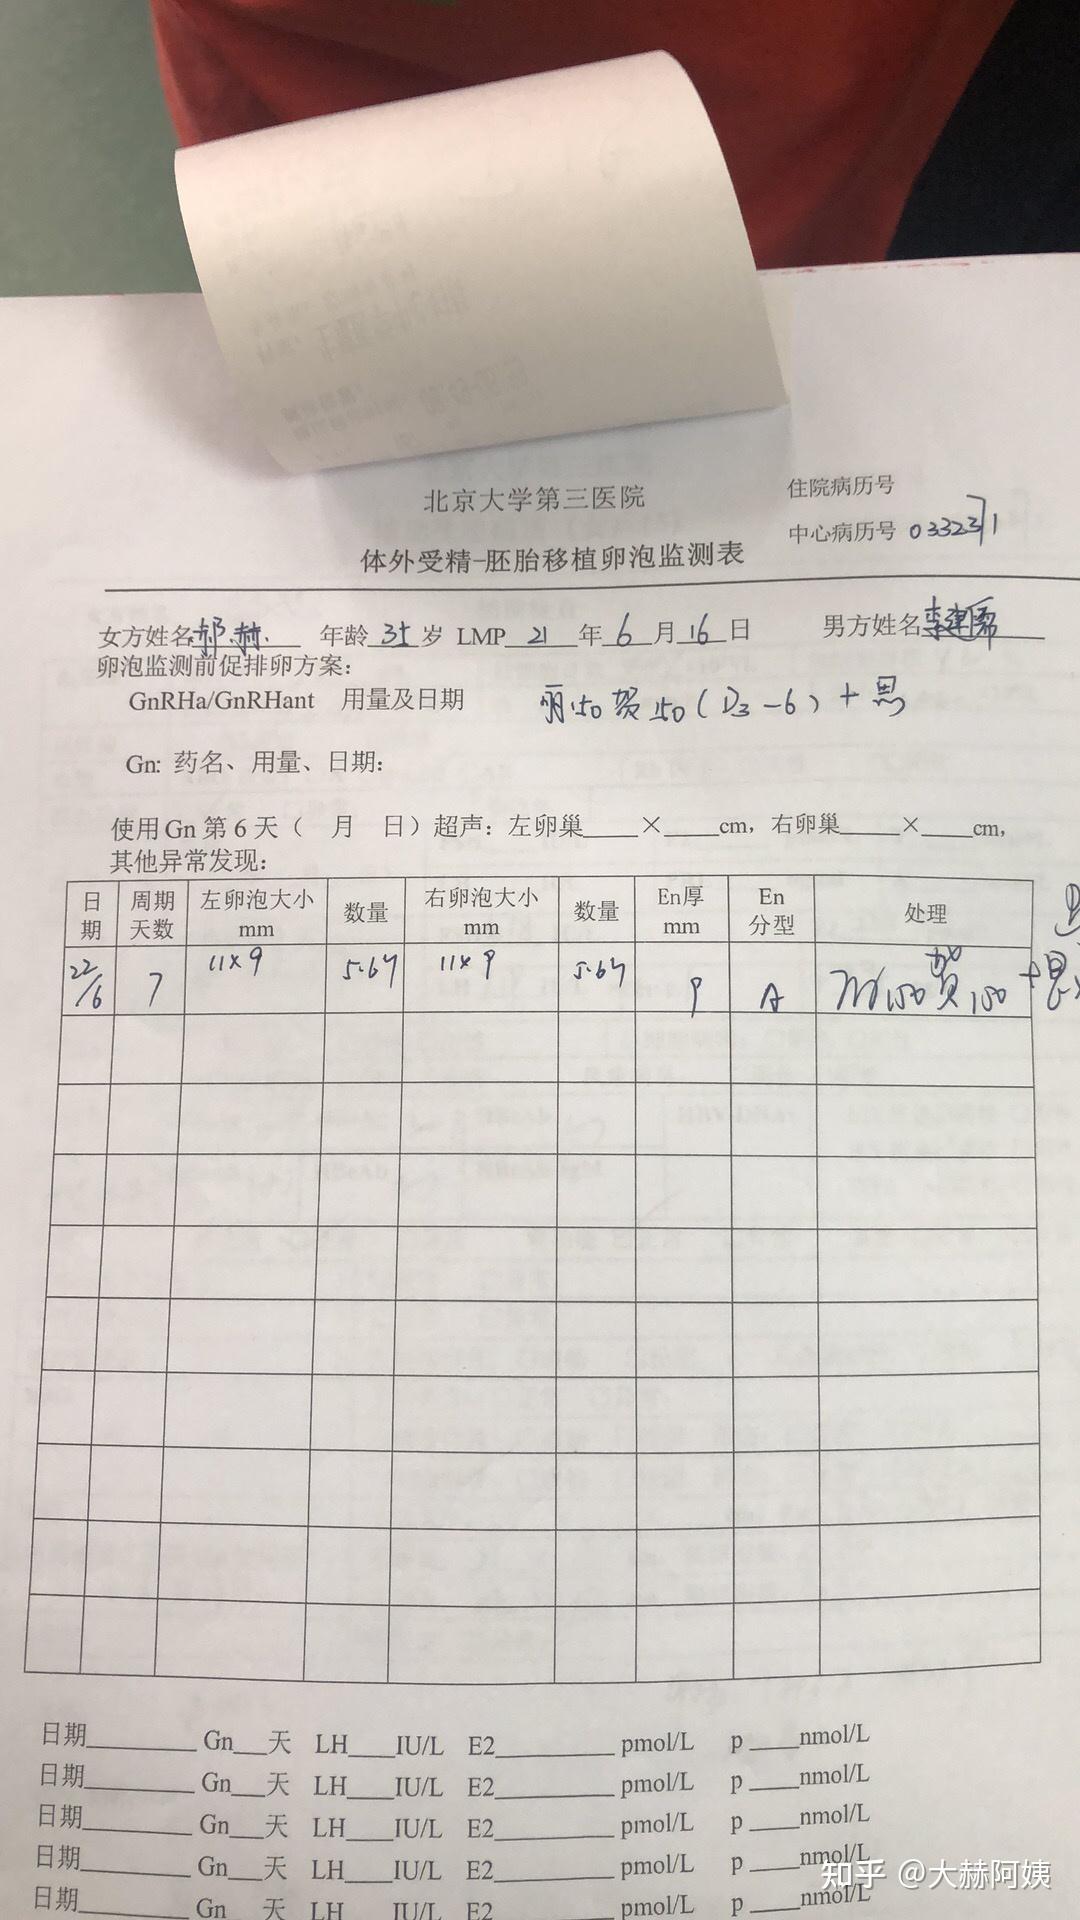 北京大学第三医院
住院病历号
中心病历号 0332371
体外受精-胚胎移植卵泡监测表
女方姓名 郝赫 年龄 35 岁 LMP 21 年 6 月 16 日 男方姓名 李建
卵泡监测前促排卵方案：
GnRHa/GnRHant 用量及日期 丽150 贺150 (D3-6) + 思
Gn: 药名、用量、日期：
使用Gn 第 6 天（ 月 日）超声：左卵巢____×____cm，右卵巢____×____cm，
其他异常发现：
日期 周期天数 左卵泡大小 mm 数量 右卵泡大小 mm 数量 En厚 mm En 分型 处理
22/6 7 11×9 5-6个 11×9 5-6个 9 A 丽150 贺150 + 思
日期________ Gn___天 LH____IU/L E2________ pmol/L p ____nmol/L
日期________ Gn___天 LH____IU/L E2________ pmol/L p ____nmol/L
日期________ Gn___天 LH____IU/L E2________ pmol/L p ____nmol/L
日期________ Gn___天 LH____IU/L E2________ pmol/L p ____nmol/L
日期________ Gn___天 LH____IU/L E2________ pmol/L p ____nmol/L
知乎 @大赫阿姨